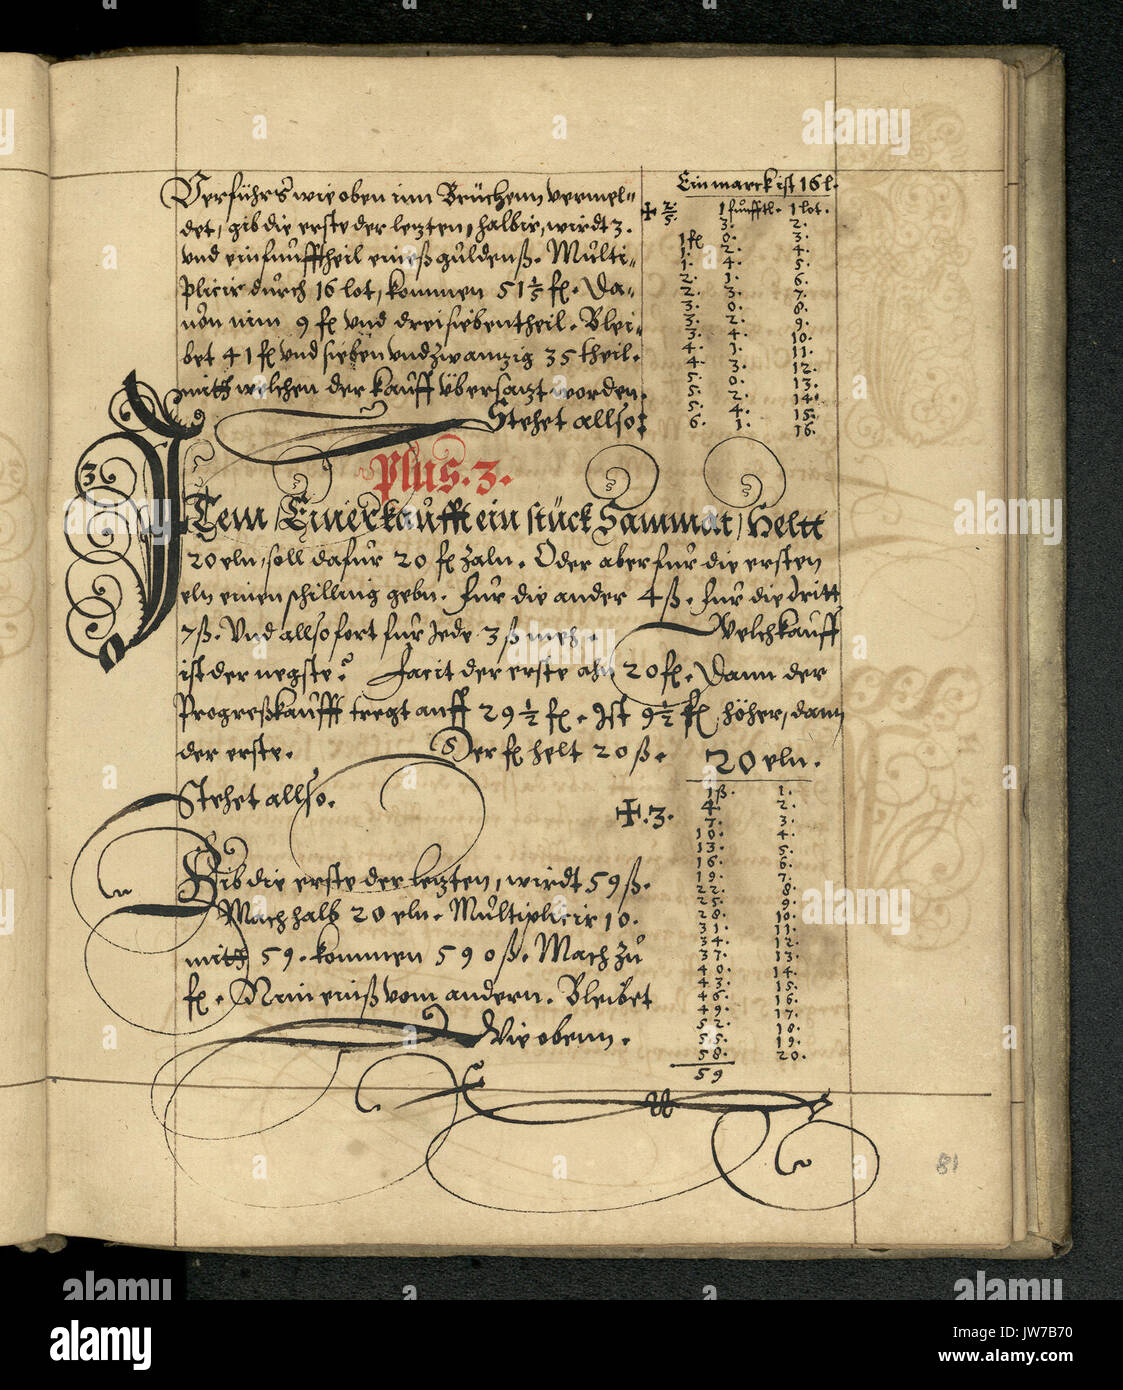 Verführs wie oben inn Brüchenn vermel=
det, gib die erste der letzten, halbir, wirdt 3.
vnd ein fünfftheil eineß güldenß. Multi=
plicir durch 16 lot, kommen 51 1/5 fl. Da=
uon nim 9 fl vnd dreisiebentheil. Blei=
bet 41 fl vnd sieben vnd zwantzig 35 theil.
mitt welchen der kauff übersatzt worden.
Stehet allso:
Ein marck ist 16 l.
+ 2/5. 1 fünfftl. 1 lot.
3. 2.
1 fl 0. 3.
1. 2. 4.
1. 4. 5.
2. 1. 6.
2. 3. 7.
3. 0. 8.
3. 2. 9.
3. 4. 10.
4. 1. 11.
4. 3. 12.
5. 0. 13.
5. 2. 14.
5. 4. 15.
6. 1. 16.
Plus. 3.
3
ITem, Einer kaufft ein stück Sammat, Heltt
20 eln, soll dafür 20 fl zaln. Oder aber für die ersten
eln einen schilling gebn. für die ander 4 ß. für die dritt
7 ß. Vnd allso fort für Jede 3 ß meh. Welch kauff
ist der negste? Facit der erste ahn 20 fl. Dann der
Progreßkaufff tregt auff 29 1/2 fl. Ist 9 1/2 fl höher, dann
der erste. Der fl helt 20 ß.
Stehet allso.
20 eln.
+.3.
1 ß. 1.
4. 2.
7. 3.
10. 4.
13. 5.
16. 6.
19. 7.
22. 8.
25. 9.
28. 10.
31. 11.
34. 12.
37. 13.
40. 14.
43. 15.
46. 16.
49. 17.
52. 18.
55. 19.
58. 20.
59
Gib die erste der letzten, wirdt 59 ß.
Mach halb 20 eln. Multiplicir 10.
mitt 59. kommen 590 ß. Mach zu
fl. Nim einß vom andern. Bleibet
Wie obenn.
81
alamy
Image ID: JW7B70
www.alamy.com